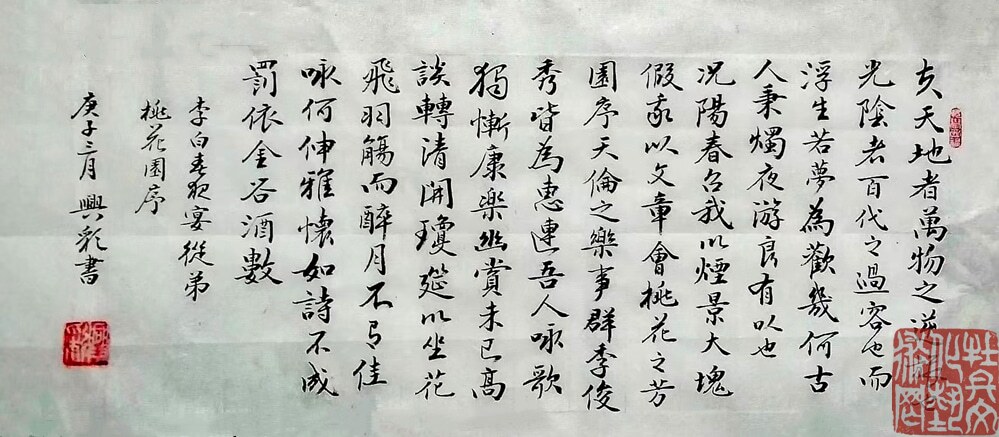 夫天地者萬物之逆
光陰者百代之過客也而
浮生若夢為歡幾何古
人秉燭夜游良有以也
況陽春召我以煙景大塊
假我以文章會桃花之芳
園序天倫之樂事群季俊
秀皆為惠連吾人咏歌
獨慚康樂幽賞未已高
談轉清開瓊筵以坐花
飛羽觴而醉月不有佳
咏何伸雅懷如詩不成
罰依金谷酒數
李白春夜宴從弟
桃花園序
庚子三月 興彩書